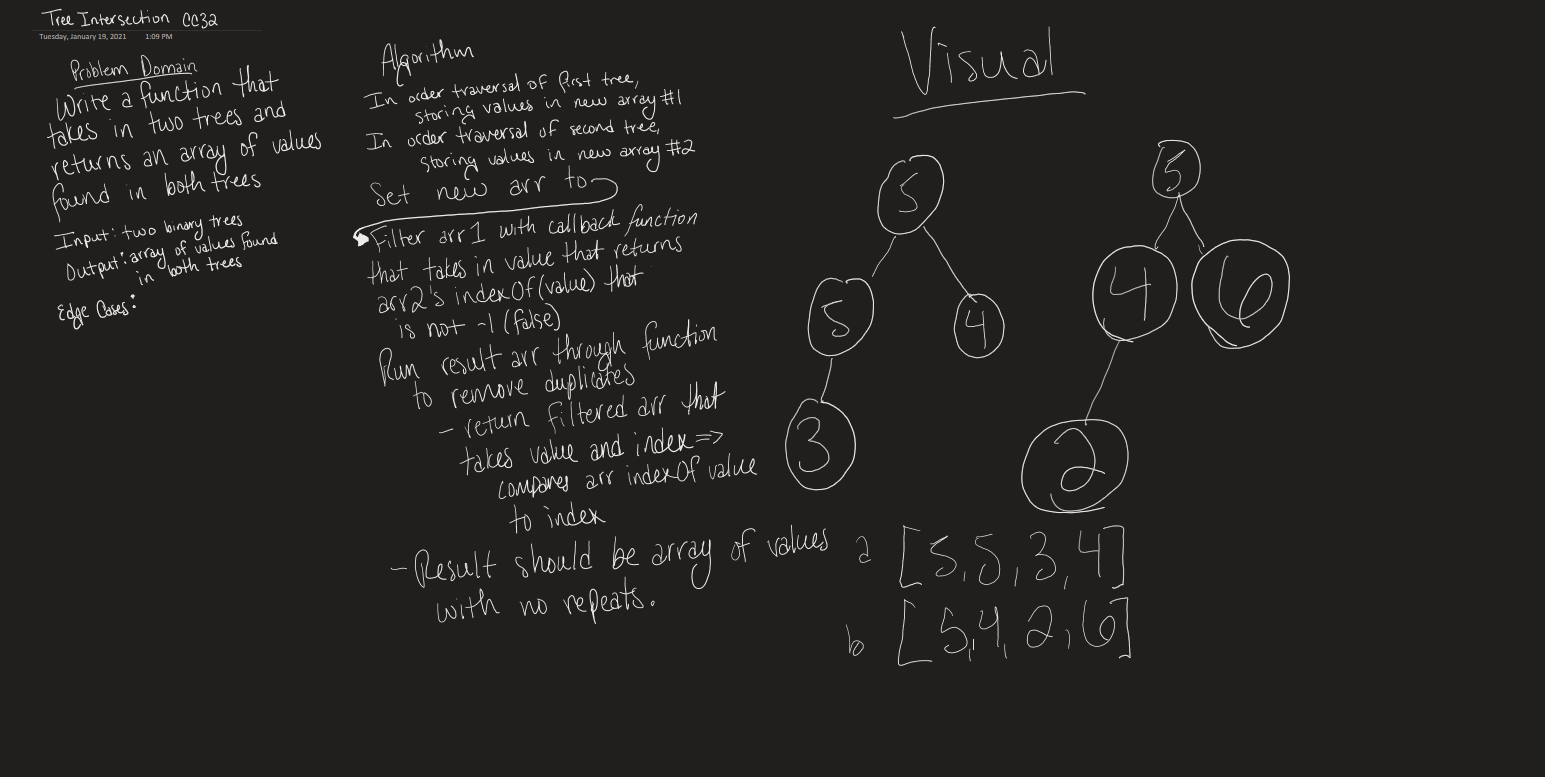 Tree Intersection CC32
Tuesday, January 19, 2021 1:09 PM
Problem Domain
Write a function that
takes in two trees and
returns an array of values
found in both trees
Input: two binary trees
Output: array of values found
in both trees
Edge Cases:
Algorithm
In order traversal of first tree,
storing values in new array #1
In order traversal of second tree,
storing values in new array #2
Set new arr to
Filter arr1 with callback function
that takes in value that returns
arr2's indexOf(value) that
is not -1 (false)
Run result arr through function
to remove duplicates
- return filtered arr that
takes value and index =>
compares arr indexOf value
to index
- Result should be array of values
with no repeats.
Visual
5
5 4
3
5
4 6
2
a [5, 5, 3, 4]
b [5, 4, 2, 6]